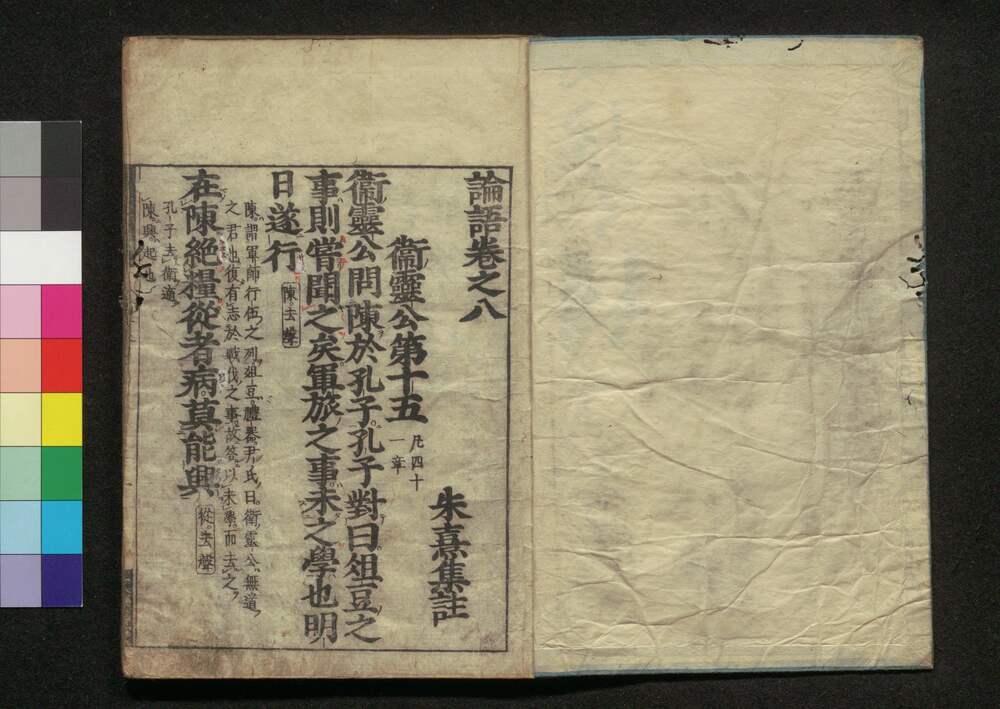 論語卷之八
朱熹集註
衞靈公第十五
凡四十
一章
衞靈公問陳於孔子孔子對曰俎豆之
事則嘗聞之矣軍旅之事未之學也明
日遂行
陳去聲
陳謂軍師行伍之列俎豆禮器尹氏曰衞靈公無道
之君也復有志於戰伐之事故答以未學而去之
在陳絶糧從者病莫能興
從去聲
孔子去衞適
陳興起也